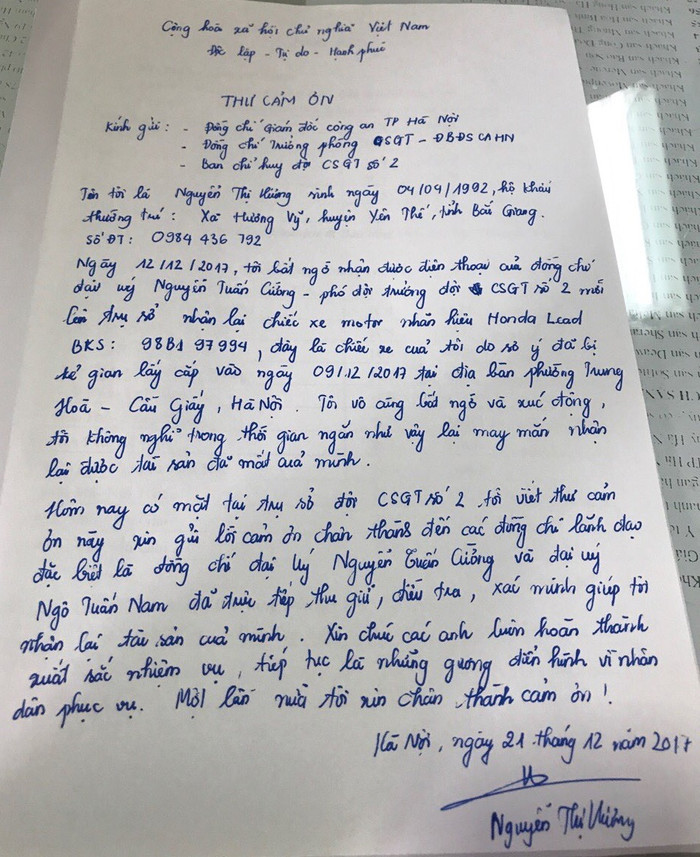 Cộng hoà xã hội chủ nghĩa Việt Nam
Độc lập - Tự do - Hạnh phúc
THƯ CẢM ƠN
Kính gửi : - Đồng chí Giám đốc công an TP Hà Nội
- Đồng chí Trưởng phòng CSGT - ĐBĐS CAHN
- Ban chỉ huy đội CSGT số 2
Tên tôi là Nguyễn Thị Hương sinh ngày 04/04/1992, hộ khẩu
thường trú : Xã Hương Vỹ, huyện Yên Thế, tỉnh Bắc Giang.
Số ĐT : 0984 436 792
Ngày 12/12/2017, tôi bất ngờ nhận được điện thoại của đồng chí
đại uý Nguyễn Tuấn Cường - phó đội trưởng đội CSGT số 2 mời
lên trụ sở nhận lại chiếc xe motor nhãn hiệu Honda Lead
BKS : 98B1 97994, đây là chiếc xe của tôi do sơ ý đã bị
kẻ gian lấy cắp vào ngày 09/12/2017 tại địa bàn phường Trung
Hoà - Cầu Giấy, Hà Nội. Tôi vô cùng bất ngờ và xúc động,
tôi không nghĩ trong thời gian ngắn như vậy lại may mắn nhận
lại được tài sản đã mất của mình.
Hôm nay có mặt tại trụ sở đội CSGT số 2 tôi viết thư cảm
ơn này xin gửi lời cảm ơn chân thành đến các đồng chí lãnh đạo
đặc biệt là đồng chí đại uý Nguyễn Tuấn Cường và đại uý
Ngô Tuấn Nam đã trực tiếp thu giữ, điều tra, xác minh giúp tôi
nhận lại tài sản của mình. Xin chúc các anh luôn hoàn thành
xuất sắc nhiệm vụ, tiếp tục là những gương điển hình vì nhân
dân phục vụ. Một lần nữa tôi xin chân thành cảm ơn!
Hà Nội, ngày 21 tháng 12 năm 2017
Nguyễn Thị Hương